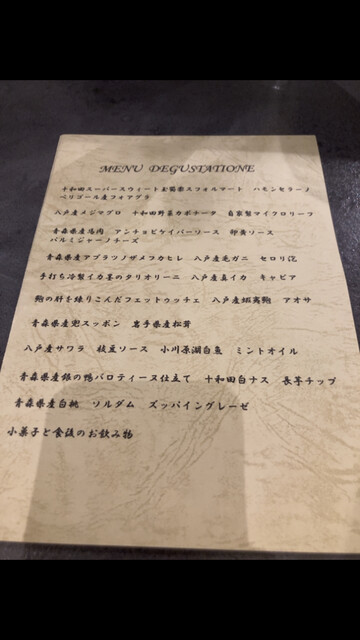 MENU DEGUSTATIONE
十和田スーパースウィート玉蜀黍スフォルマート　ハモンセラーノ
ペリゴール産フォアグラ
八戸産メジマグロ　十和田野菜カポナータ　自家製マイクロリーフ
青森県産馬肉　アンチョビケイパーソース　卵黄ソース
パルミジャーノチーズ
青森県産アブラツノザメフカヒレ　八戸産毛ガニ　セロリ泡
手打ち冷製イカ墨のタリオリーニ　八戸産真イカ　キャビア
鮑の肝を練りこんだフェットゥッチェ　八戸産蝦夷鮑　アオサ
青森県産兜スッポン　岩手県産松茸
八戸産サワラ　枝豆ソース　小川原湖白魚　ミントオイル
青森県産銀の鴨バロティーヌ仕立て　十和田白ナス　長芋チップ
青森県産白桃　ソルダム　ズッパイングレーゼ
小菓子と食後のお飲み物